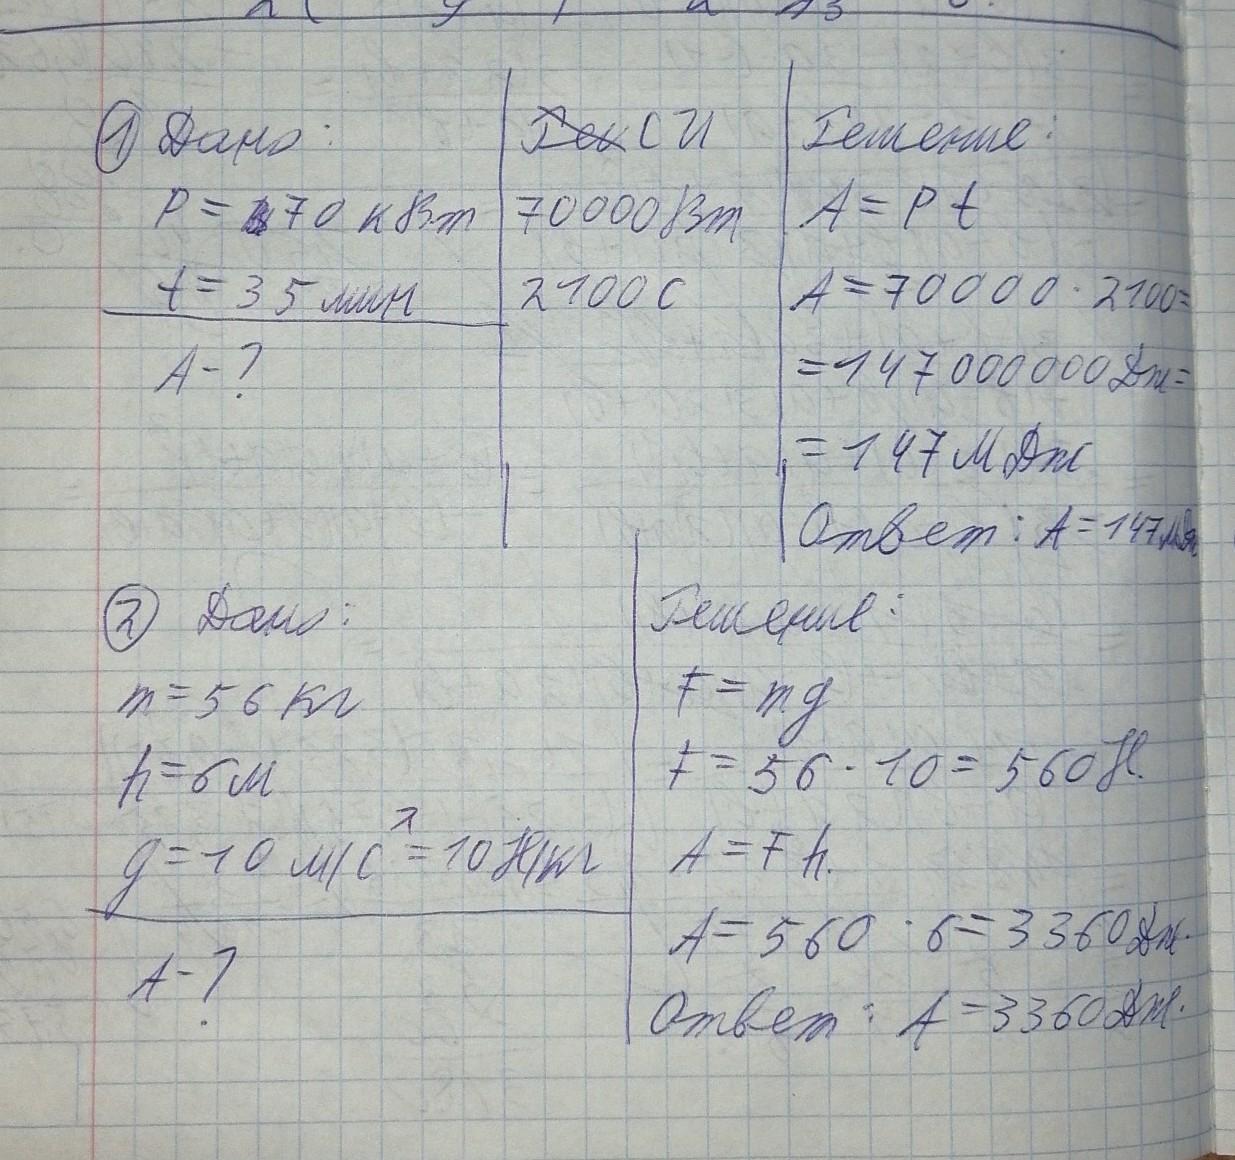 ① Дано:
P = 70 кВт
t = 35 мин
A - ?
СИ
70000 Вт
2100 с
Решение:
A = P t
A = 70000 · 2100 =
= 147 000 000 Дж =
= 147 МДж
Ответ: A = 147 МДж
② Дано:
m = 56 кг
h = 6 м
g = 10 м/с² = 10 Н/кг
A - ?
Решение:
F = mg
F = 56 · 10 = 560 Н.
A = F h.
A = 560 · 6 = 3360 Дж.
Ответ: A = 3360 Дж.